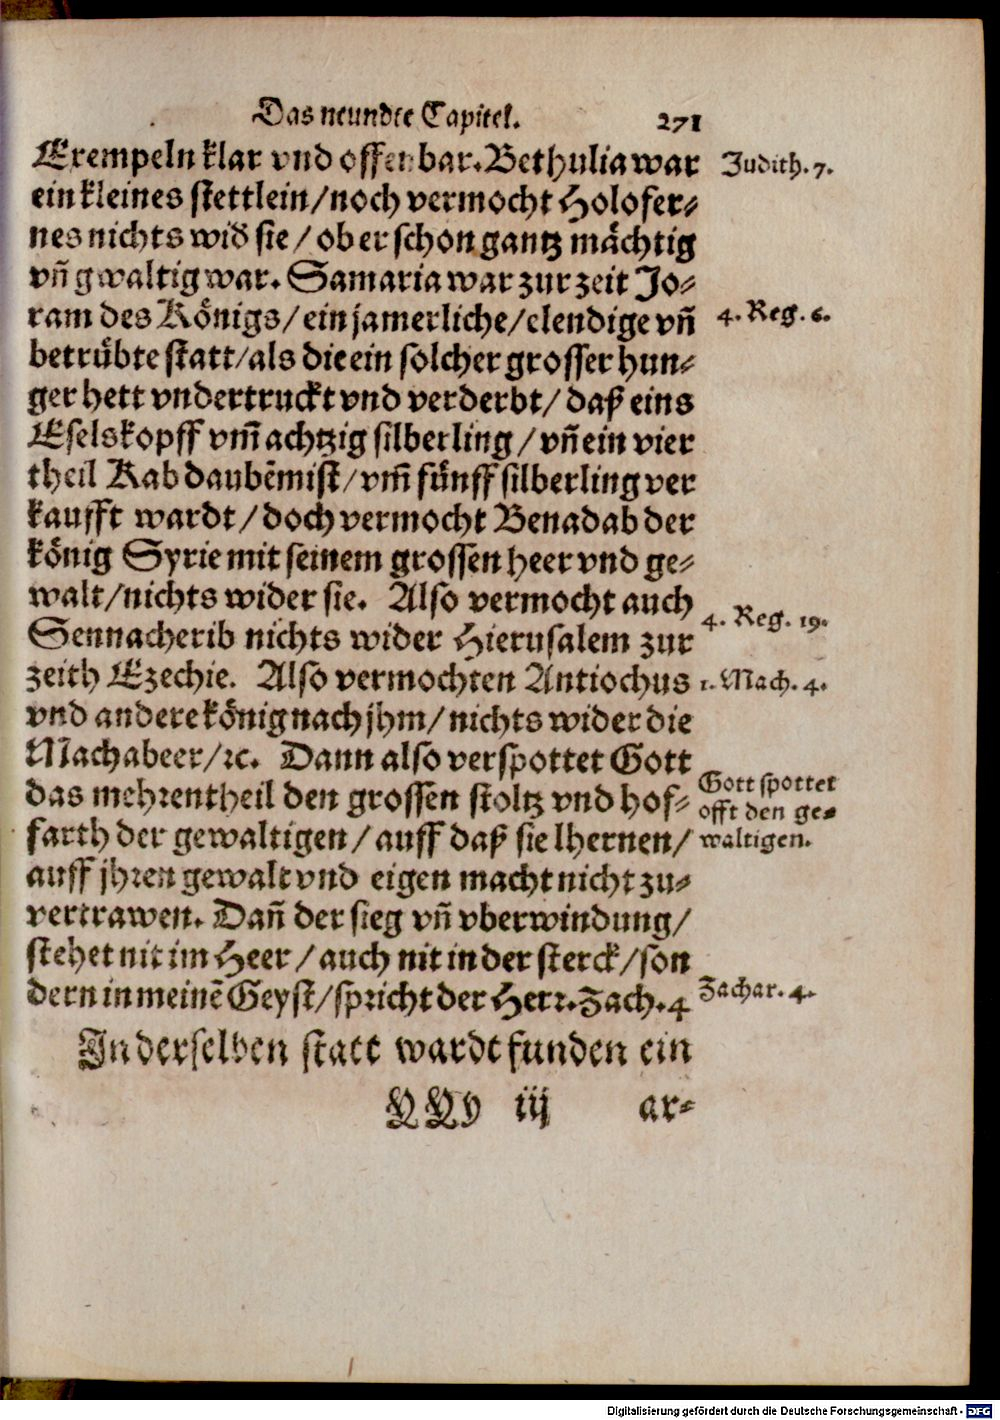 Das neundte Capitel. 271
Exempeln klar vnd offenbar. Bethulia war
Judith. 7.
ein kleines stettlein/noch vermocht Holofer⸗
nes nichts wid̕ sie/ob er schon gantz mächtig
vñ gwaltig war. Samaria war zur zeit Jo⸗
ram des Königs/ein jamerliche/elendige vñ
4. Reg. 6.
betrübte statt/als die ein solcher grosser hun⸗
ger hett vndertruckt vnd verderbt/daß eins
Eselskopff vm̃ achtzig silberling/vñ ein vier
theil Kab daubẽmist/vm̃ fünff silberling ver
kaufft wardt/doch vermocht Benadab der
könig Syrie mit seinem grossen heer vnd ge⸗
walt/nichts wider sie. Also vermocht auch
4. Reg. 19.
Sennacherib nichts wider Hierusalem zur
zeith Ezechie. Also vermochten Antiochus
1. Mach. 4.
vnd andere könig nach jhm/nichts wider die
Machabeer/ꝛc. Dann also verspottet Gott
das mehrentheil den grossen stoltz vnd hof⸗
Gott spottet
offt den ge⸗
waltigen.
farth der gewaltigen/auff daß sie lhernen/
auff jhren gewalt vnd eigen macht nicht zu⸗
vertrawen. Dañ der sieg vñ vberwindung/
stehet nit im Heer/auch nit in der sterck/son
dern in meinẽ Geyst/spricht der Herr. Zach. 4
Zachar. 4.
In derselben statt wardt funden ein
YYy iij ar⸗
Digitalisierung gefördert durch die Deutsche Forschungsgemeinschaft - DFG